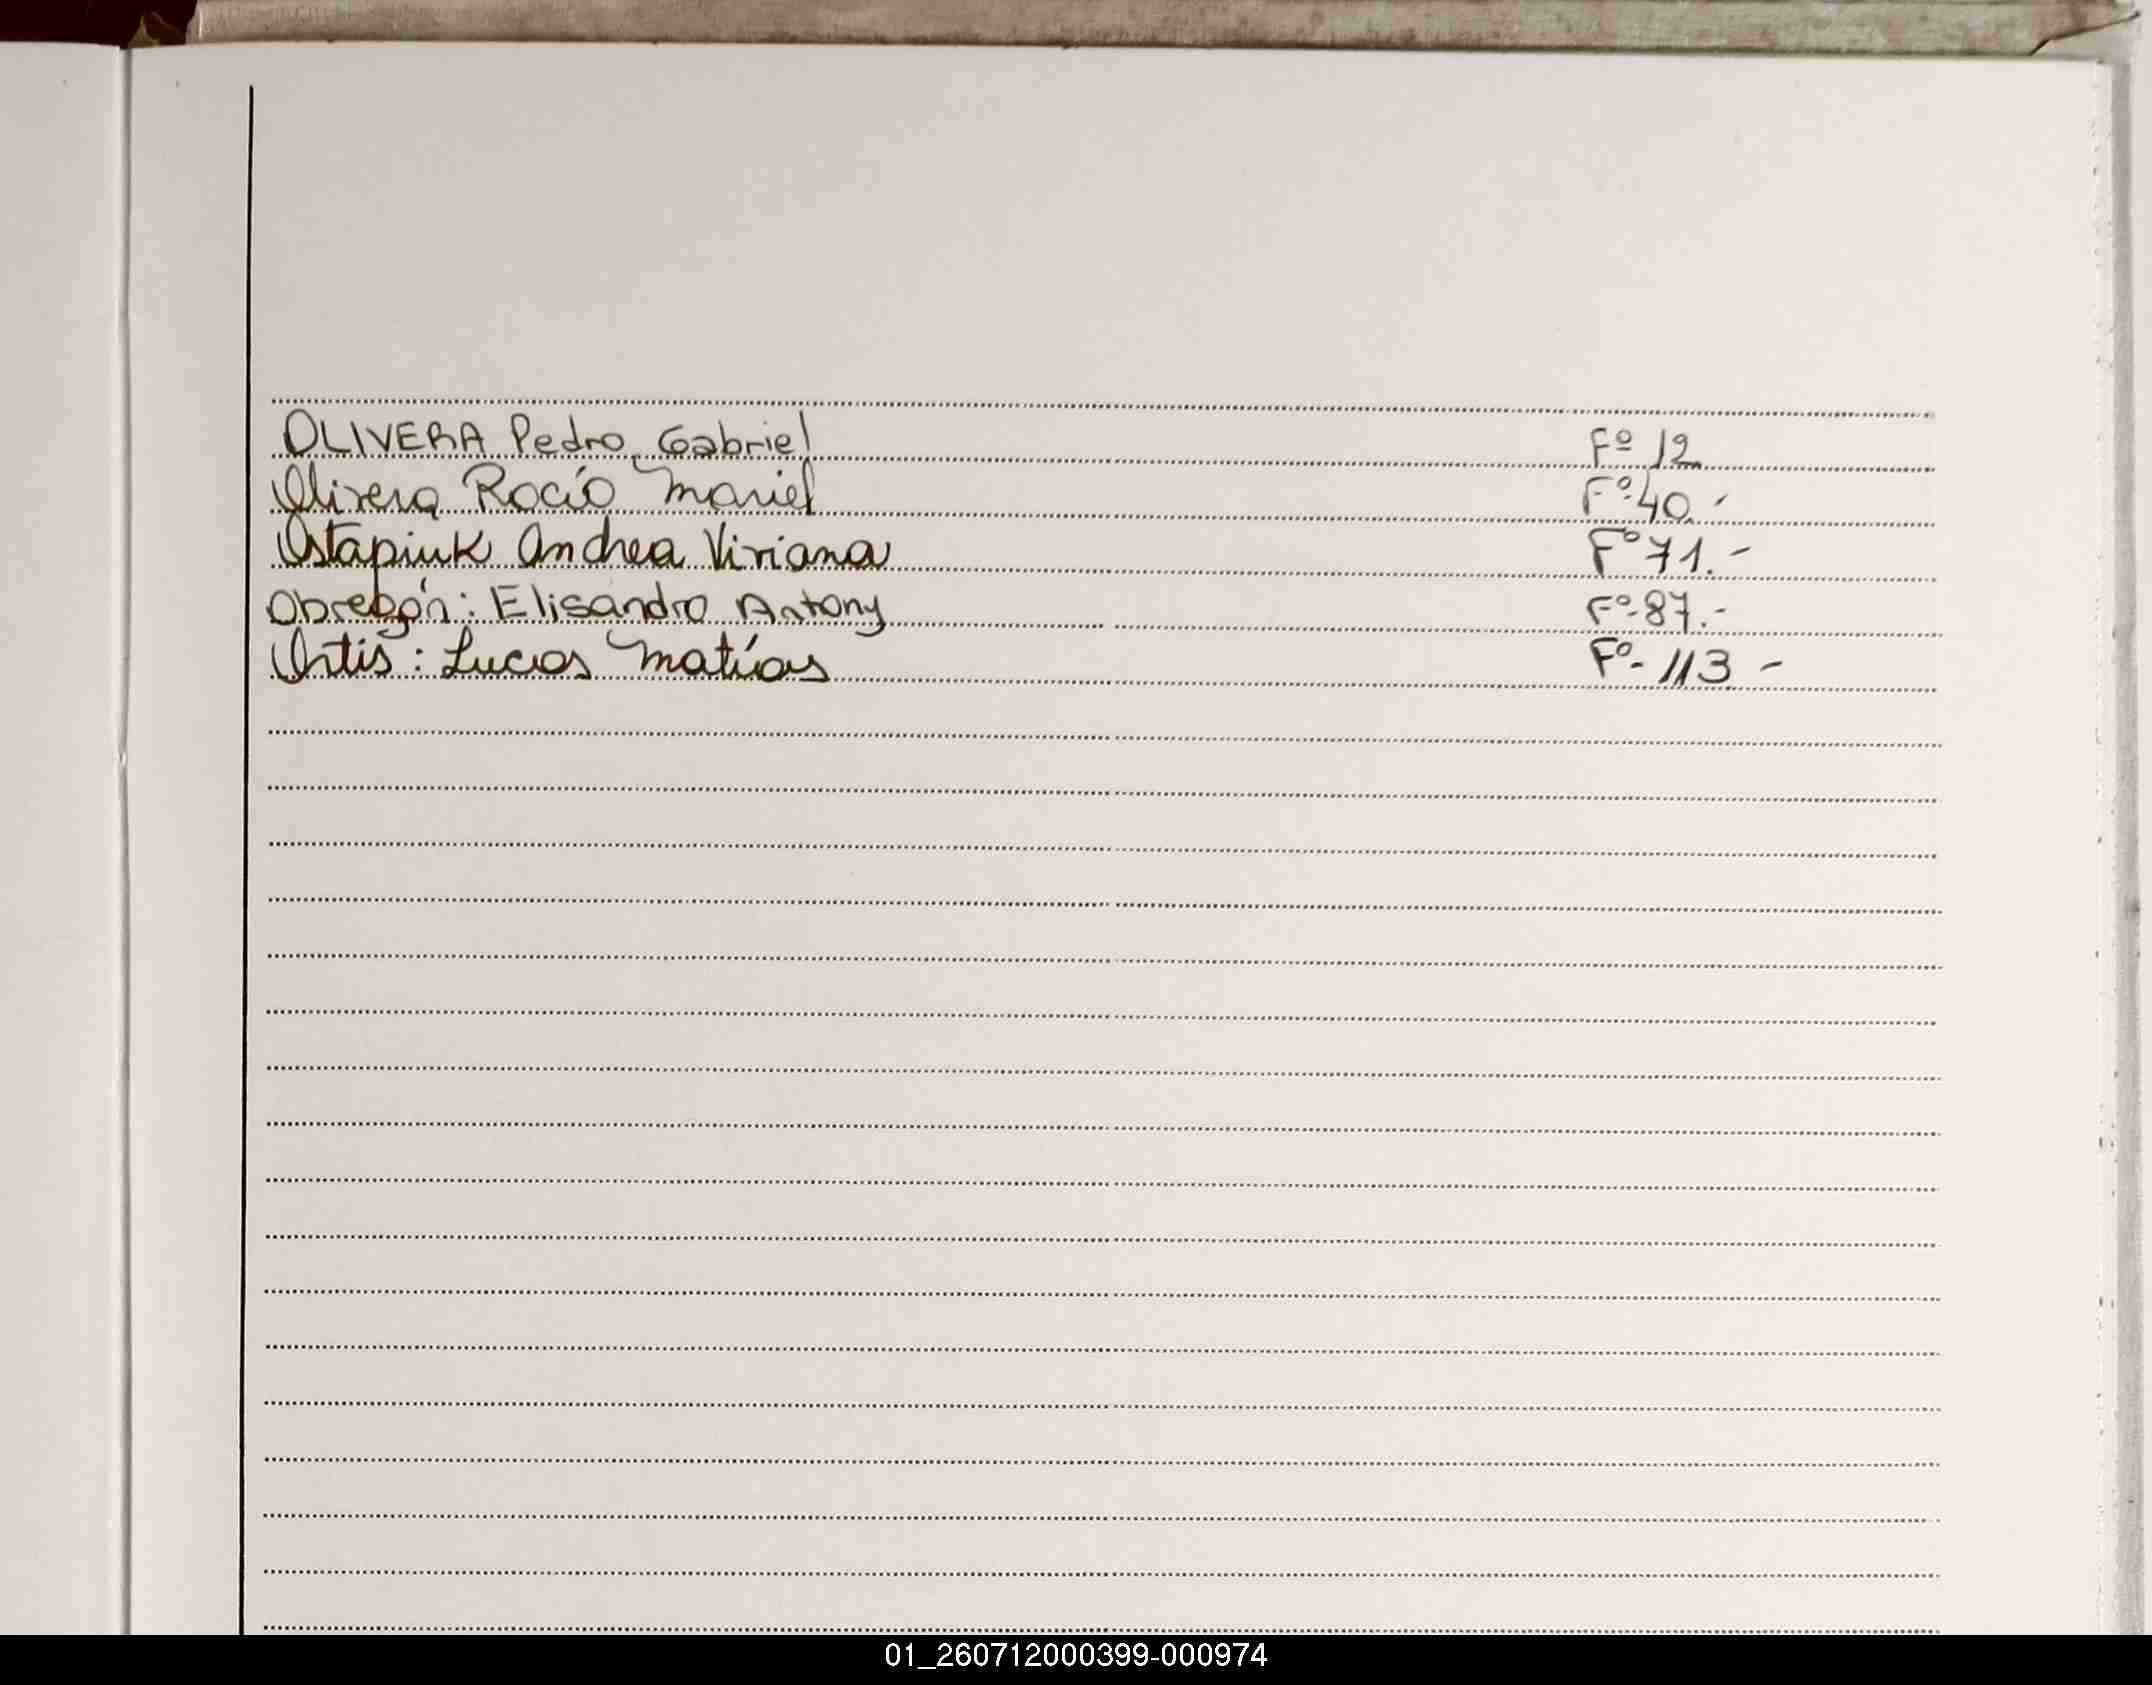 OLIVERA Pedro Gabriel Fº 12
Olivera Rocío Mariel Fº 40.-
Ostapiuk Andrea Viviana Fº 71.-
Obregón: Elisandro Antony Fº 87.-
Ortis: Lucas Matías Fº- 113 -
01_260712000399-000974